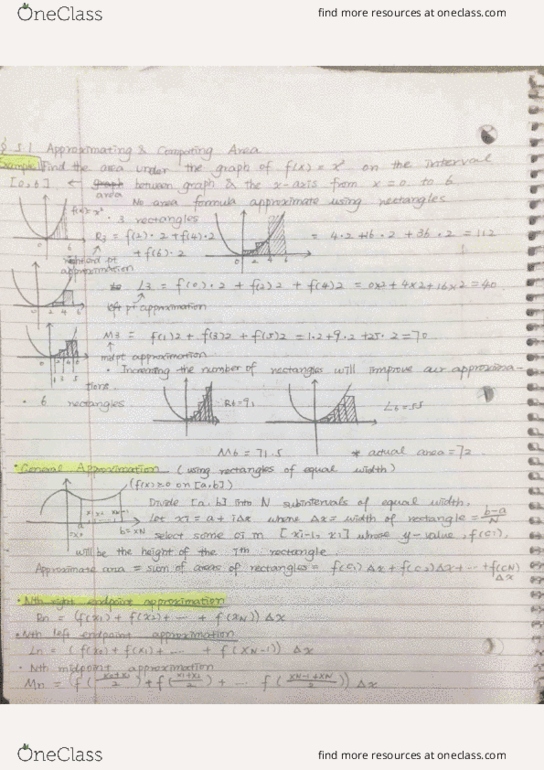 OneClass
find more resources at oneclass.com
§ 5.1 Approximating & Computing Area
Example Find the area under the graph of f(x) = x² on the interval
[0,6] ← area between graph & the x-axis from x=0 to 6
No area formula approximate using rectangles
f(x)=x²
· 3 rectangles
R3 = f(2)·2 + f(4)·2 + f(6)·2 = 4·2 + 16·2 + 36·2 = 112
right end pt approximation
L3 = f(0)·2 + f(2)2 + f(4)2 = 0x2 + 4x2 + 16x2 = 40
left pt approximation
M3 = f(1)2 + f(3)2 + f(5)2 = 1·2 + 9·2 + 25·2 = 70
midpt approximation
· Increasing the number of rectangles will improve our approxima-
tions
· 6 rectangles R6=91 L6=55
M6 = 71.5 * actual area = 72
· General Approximation (using rectangles of equal width)
(f(x)≥0 on [a,b])
Divide [a,b] into N subintervals of equal width.
let xi = a + iΔx where Δx = width of rectangle = b-a/N
select some ci in [xi-1, xi] whose y-value, f(ci),
will be the height of the ith rectangle.
Approximate area = sum of areas of rectangles = f(c1)Δx + f(c2)Δx + ... + f(cN)Δx
· Nth right endpoint approximation
Rn = (f(x1) + f(x2) + ... + f(xN)) Δx
· Nth left endpoint approximation
Ln = (f(x0) + f(x1) + ... + f(xN-1)) Δx
· Nth midpoint approximation
Mn = (f(x0+x1/2) + f(x1+x2/2) + ... f(xN-1+xN/2)) Δx
OneClass
find more resources at oneclass.com